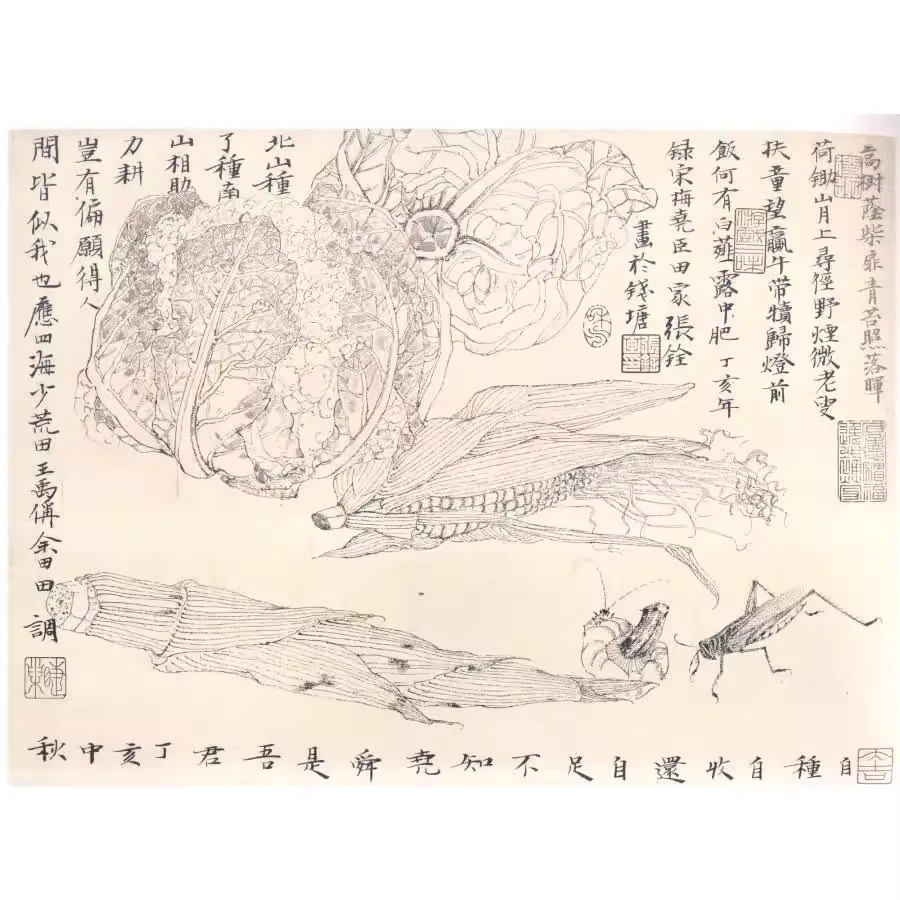 高树蔭柴扉青苔照落暉
荷鋤山月上尋徑野煙微老叟
扶童望羸牛带犢歸燈前
飯何有白薤露中肥 丁亥年
録宋梅堯臣田家 張銓
畫於錢塘
北山種
了種南
山相助
力耕
豈有偏願得人
間皆似我也應四海少荒田王禹偁畬田調
自種自收還自足不知堯舜是吾君丁亥中秋
大吉